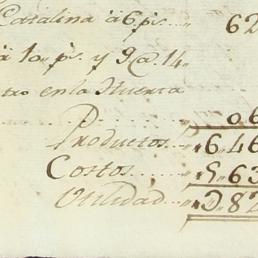 Catalina á 6 ps. 62
á 10 ps. y 9 @. 14
tro en la Huerta
06
Productos 6,46
Costos 5,63
Utilidad 0,82